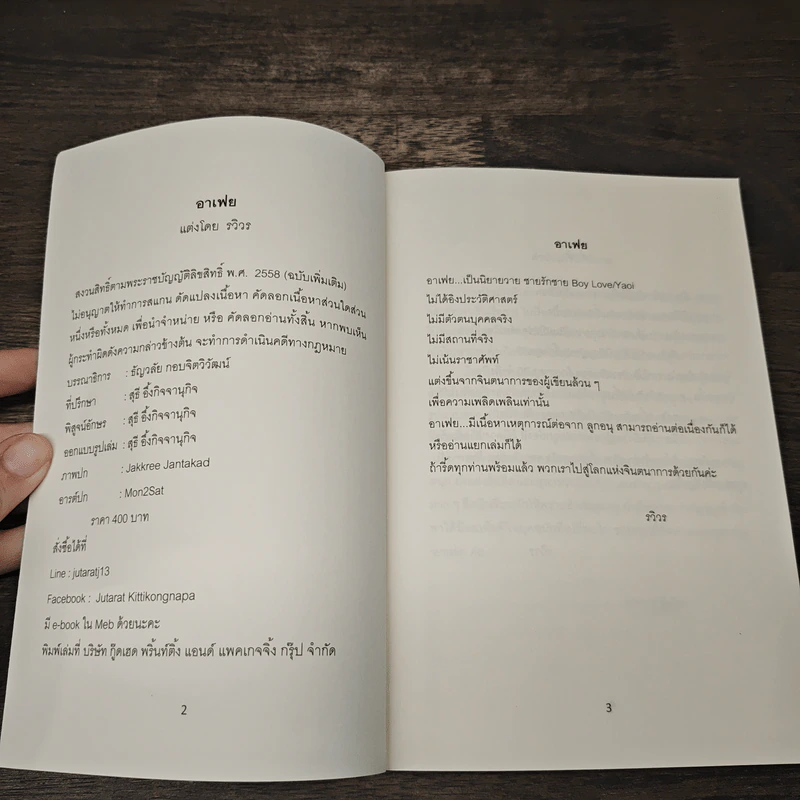 อาเฟย
แต่งโดย รวิวร
สงวนสิทธิ์ตามพระราชบัญญัติลิขสิทธิ์ พ.ศ. 2558 (ฉบับเพิ่มเติม)
ไม่อนุญาตให้ทำการสแกน ดัดแปลงเนื้อหา คัดลอกเนื้อหาส่วนใดส่วน
หนึ่งหรือทั้งหมด เพื่อนำจำหน่าย หรือ คัดลอกอ่านทั้งสิ้น หากพบเห็น
ผู้กระทำผิดดังความกล่าวข้างต้น จะทำการดำเนินคดีทางกฎหมาย
บรรณาธิการ : ธัญวลัย กอบจิตวิวัฒน์
ที่ปรึกษา : สุธี อึ้งกิจจานุกิจ
พิสูจน์อักษร : สุธี อึ้งกิจจานุกิจ
ออกแบบรูปเล่ม : สุธี อึ้งกิจจานุกิจ
ภาพปก : Jakkree Jantakad
อาร์ตปก : Mon2Sat
ราคา 400 บาท
สั่งซื้อได้ที่
Line : jutaratj13
Facebook : Jutarat Kittikongnapa
มี e-book ใน Meb ด้วยนะคะ
พิมพ์เล่มที่ บริษัท กู๊ดเฮด พริ้นท์ติ้ง แอนด์ แพคเกจจิ้ง กรุ๊ป จำกัด
2
อาเฟย
อาเฟย...เป็นนิยายวาย ชายรักชาย Boy Love/Yaoi
ไม่ได้อิงประวัติศาสตร์
ไม่มีตัวตนบุคคลจริง
ไม่มีสถานที่จริง
ไม่เน้นราชาศัพท์
แต่งขึ้นจากจินตนาการของผู้เขียนล้วน ๆ
เพื่อความเพลิดเพลินเท่านั้น
อาเฟย...มีเนื้อหาเหตุการณ์ต่อจาก ลูกอนุ สามารถอ่านต่อเนื่องกันก็ได้
หรืออ่านแยกเล่มก็ได้
ถ้ารี้ดทุกท่านพร้อมแล้ว พวกเราไปสู่โลกแห่งจินตนาการด้วยกันค่ะ
รวิวร
3